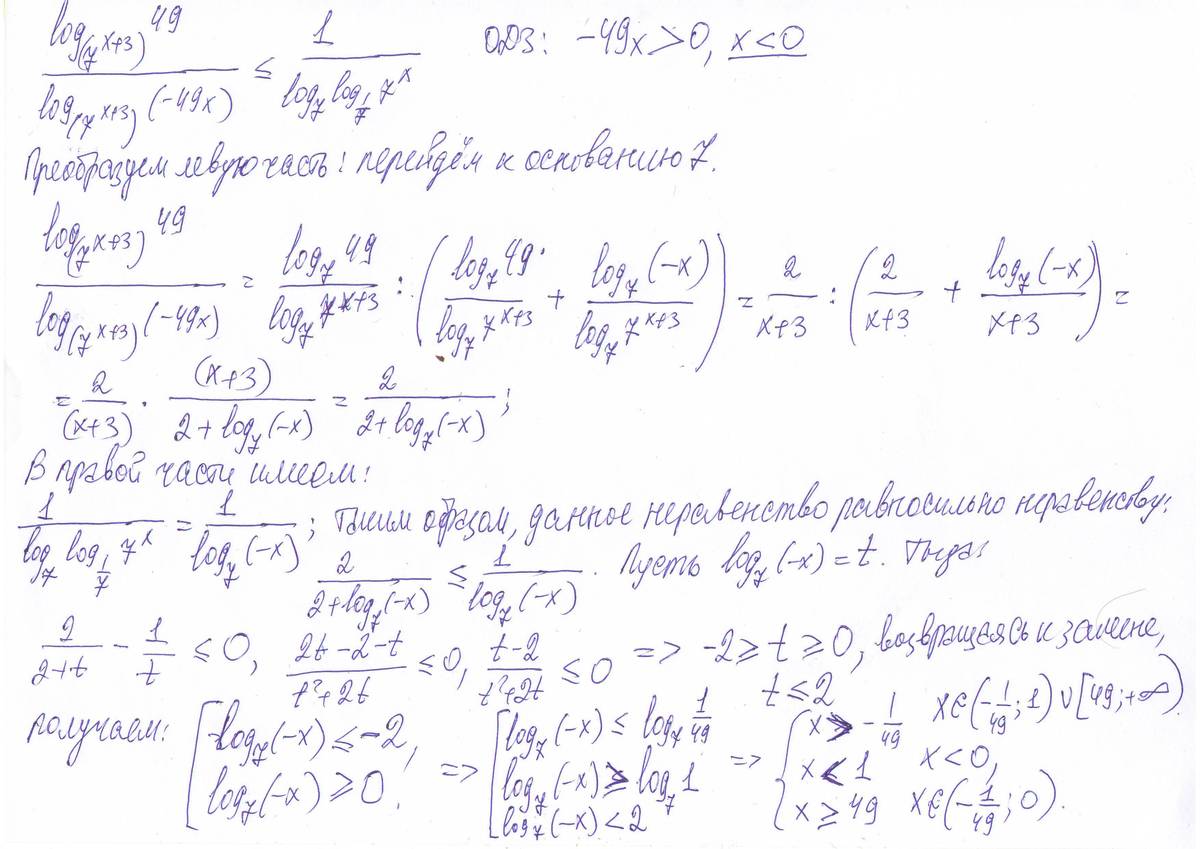 log_(7^x+3) 49 / log_(7^x+3) (-49x) ≤ 1 / log_7 log_1/7 7^x ОДЗ: -49x>0, x<0
Преобразуем левую часть: перейдём к основанию 7.
log_(7^x+3) 49 / log_(7^x+3) (-49x) = log_7 49 / log_7 7^x+3 : (log_7 49 / log_7 7^x+3 + log_7 (-x) / log_7 7^x+3) = 2 / x+3 : (2 / x+3 + log_7 (-x) / x+3) =
= 2 / (x+3) · (x+3) / 2+log_7 (-x) = 2 / 2+log_7 (-x) ;
В правой части имеем:
1 / log_7 log_1/7 7^x = 1 / log_7 (-x) ; таким образом, данное неравенство равносильно неравенству:
2 / 2+log_7 (-x) ≤ 1 / log_7 (-x) . Пусть log_7 (-x) = t. Тогда:
2 / 2+t - 1 / t ≤ 0, 2t-2-t / t²+2t ≤ 0, t-2 / t²+2t ≤ 0 => -2 ≥ t ≥ 0, возвращаясь к замене,
t ≤ 2
получаем: [ log_7 (-x) ≤ -2, => [ log_7 (-x) ≤ log_7 1/49 => { x > -1/49 x∈(-1/49; 1)∪[49; +∞).
log_7 (-x) ≥ 0. log_7 (-x) ≥ log_7 1 x < 1 x < 0,
log_7 (-x) < 2 x ≥ 49 x∈(-1/49; 0).